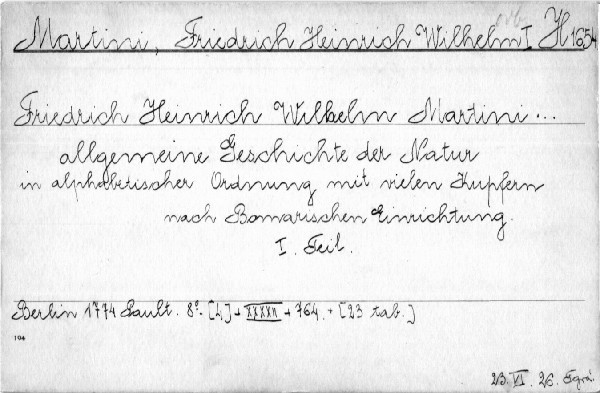 Martini, Friedrich Heinrich Wilhelm I H 1654
Friedrich Heinrich Wilhelm Martini...
allgemeine Geschichte der Natur
in alphabetischer Ordnung mit vielen Kupfern
nach Bomarischen Einrichtung.
I. Teil.
Berlin 1774 Pault. 8°. [4] + XXXXII + 764. + [23 tab.]
104
23. VI. 26.